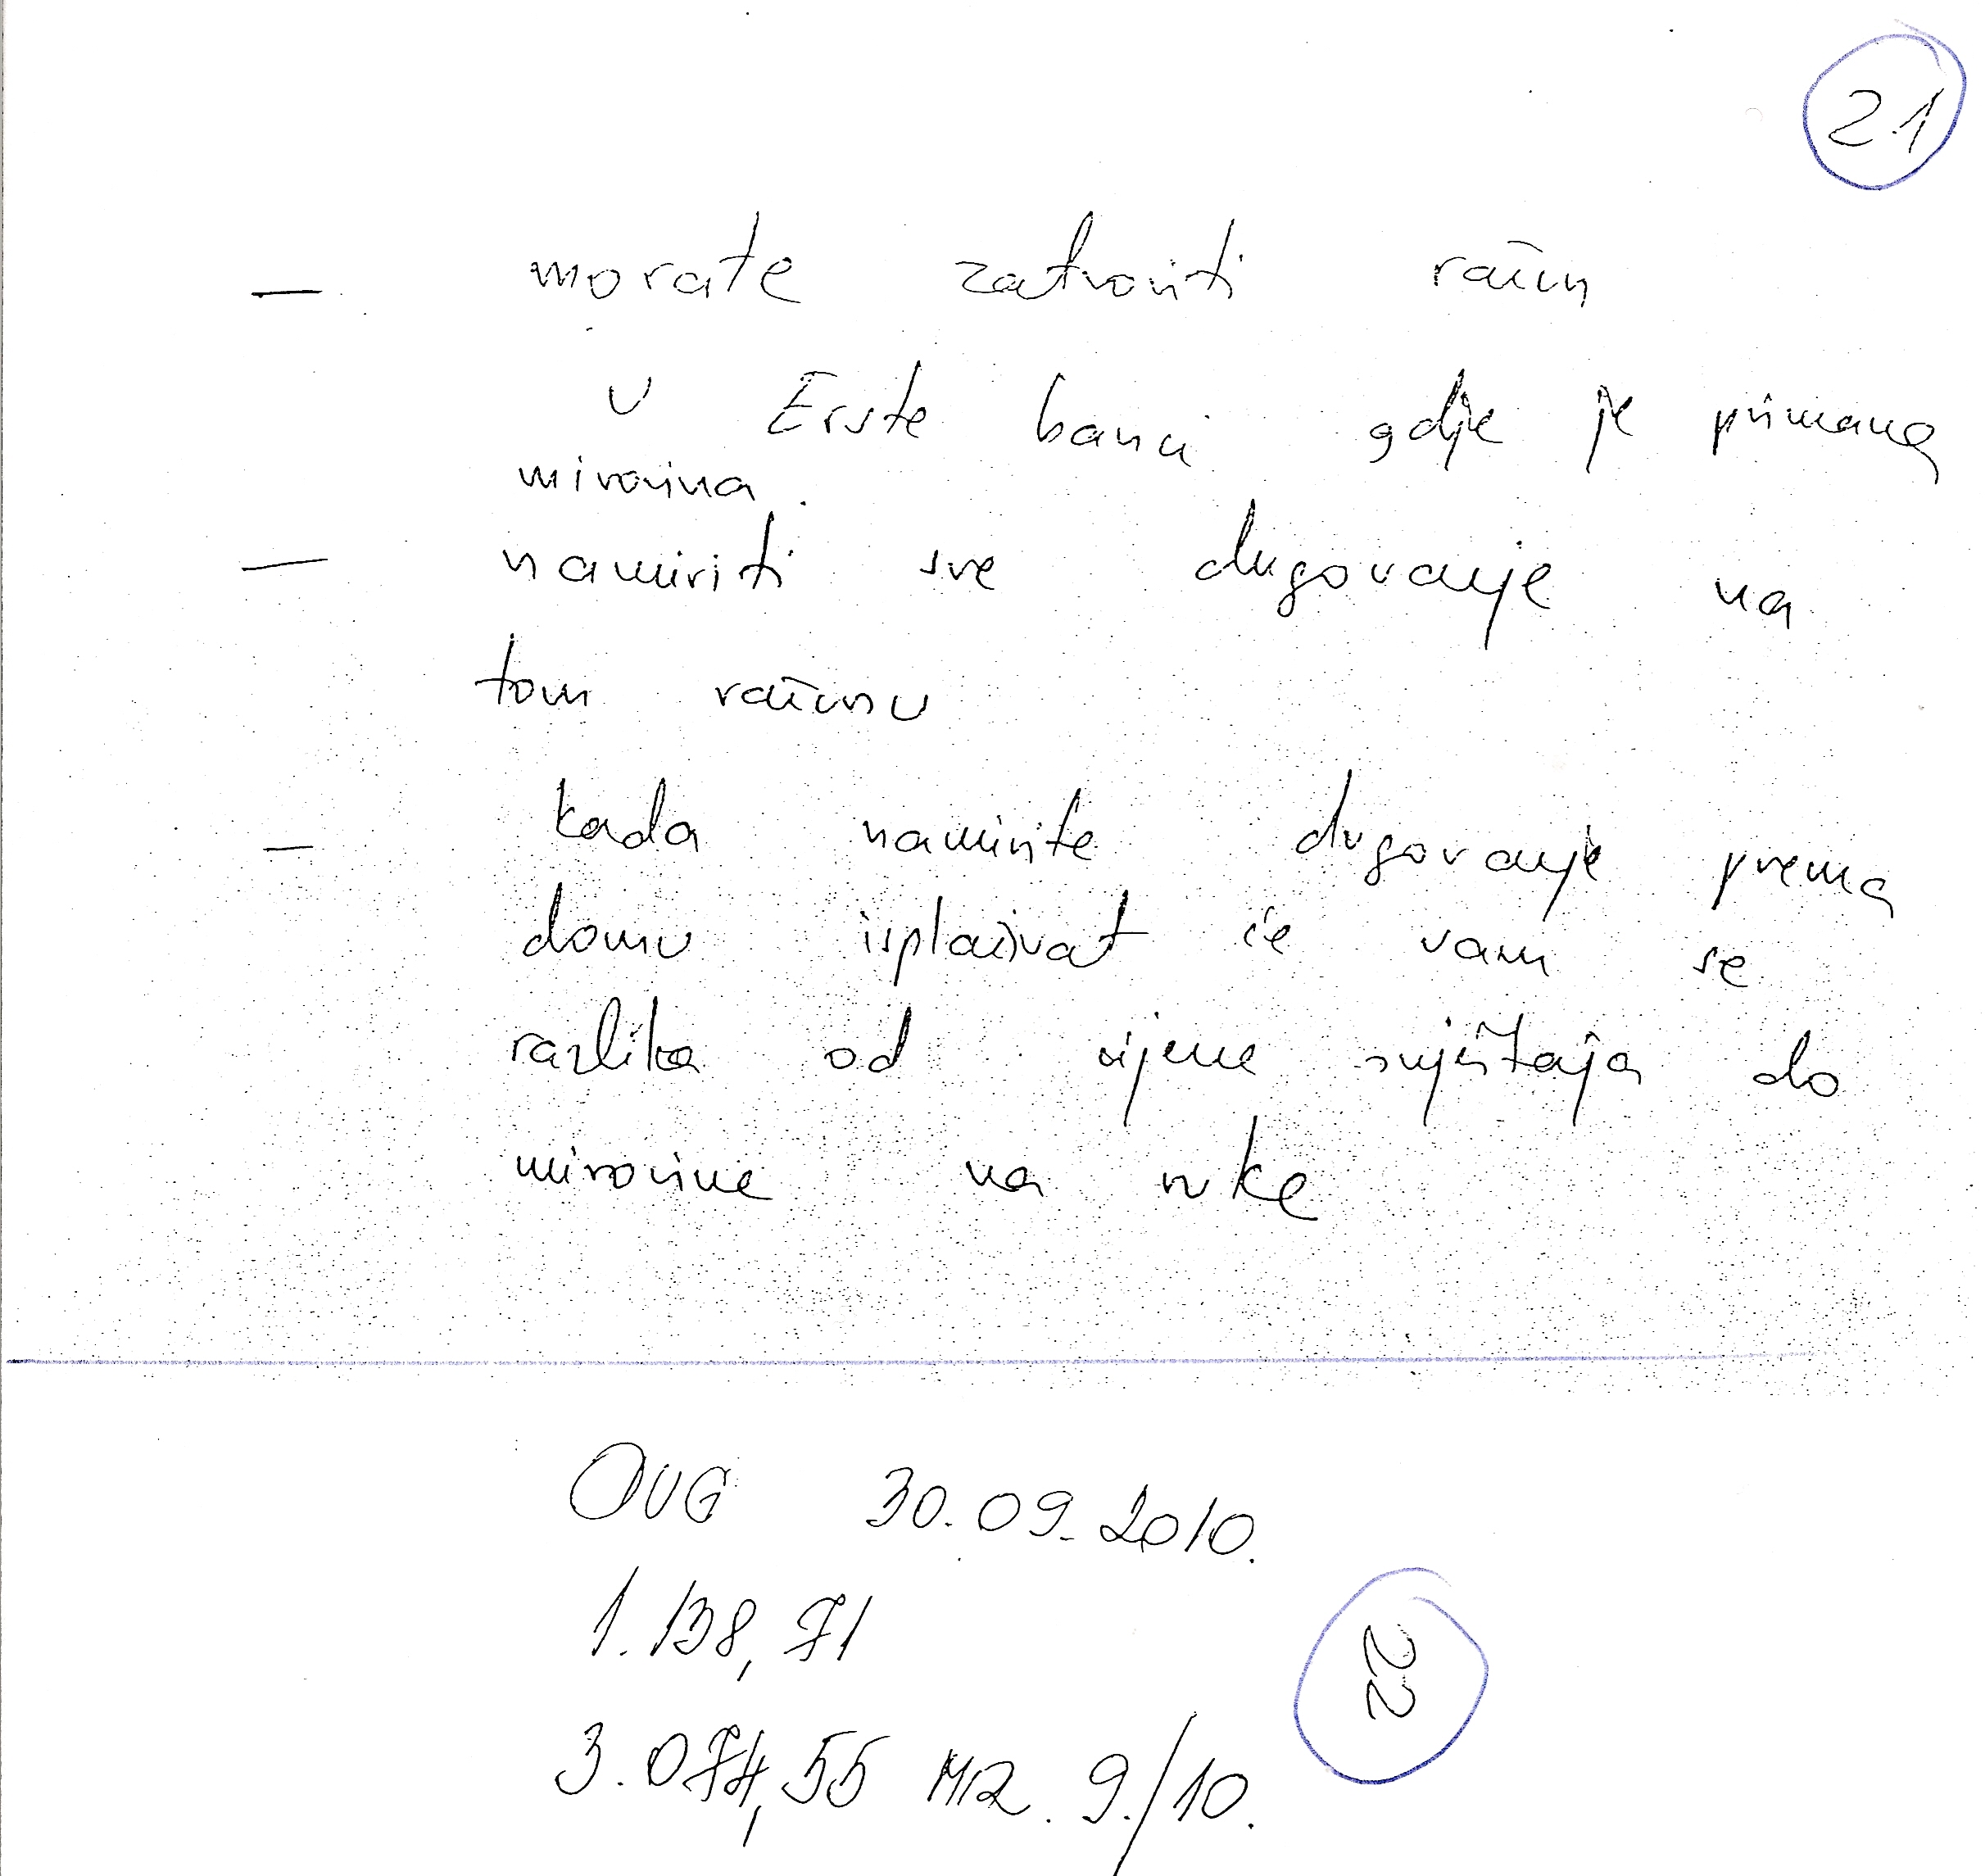 21
— morate zatvoriti račun
u Erste banci gdje je primana
mirovina.
— namiriti sve dugovanje na
tom računu
— kada namirite dugovanje prema
domu isplaćivat će vam se
razlika od cijene smještaja do
mirovine na ruke
OUG 30.09.2010.
1.138,71
22
3.074,55 MR. 9./10.